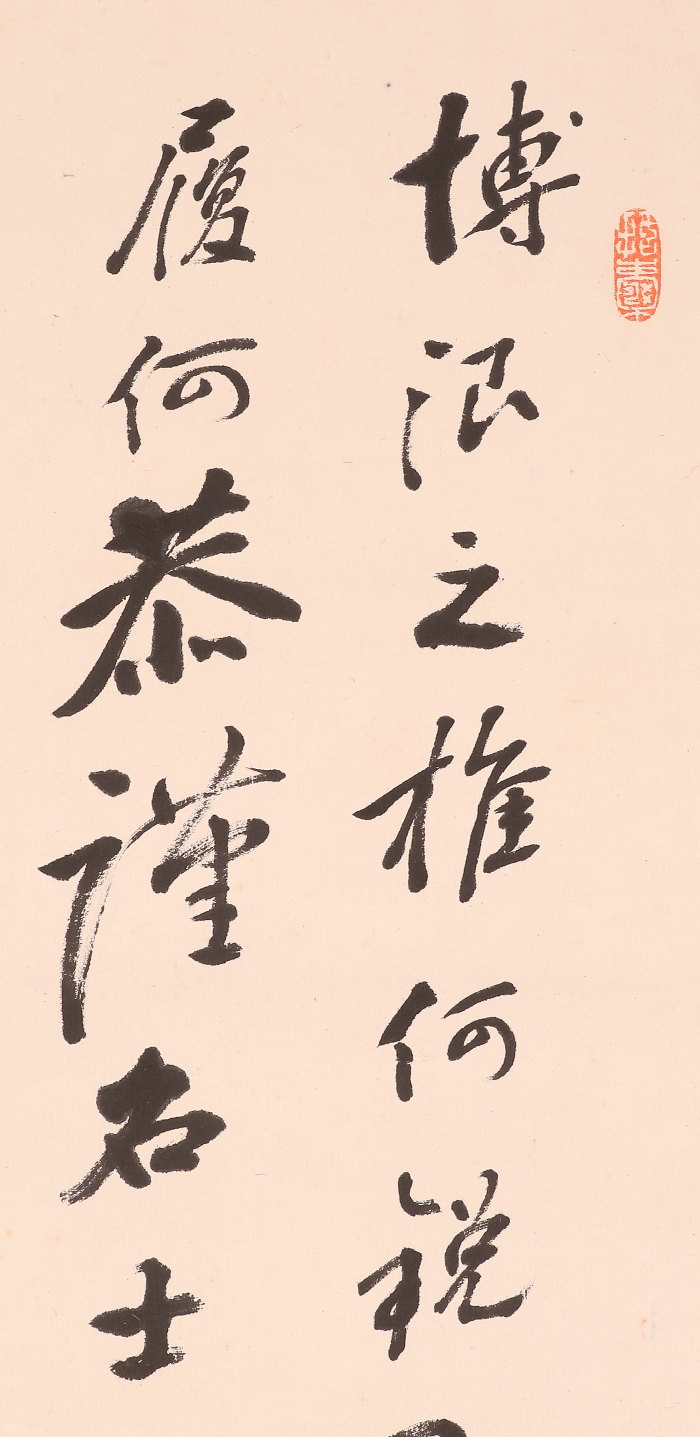 博浪之椎何銳
履何恭謹名士